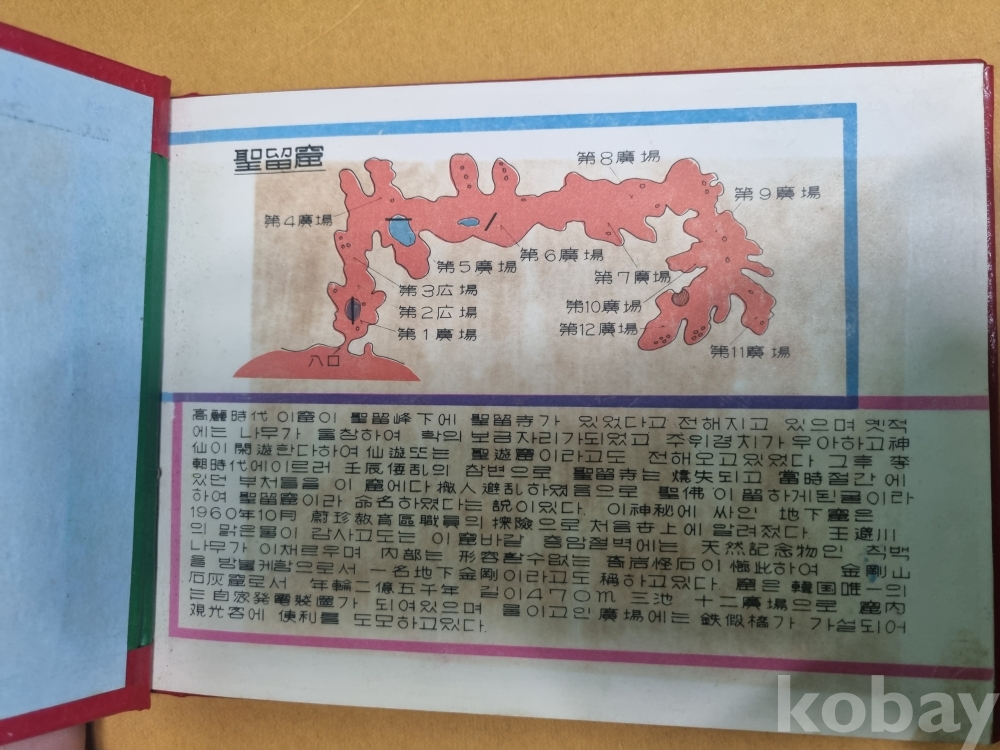 聖留窟
第8廣場
第9廣場
第4廣場
第6廣場
第5廣場
第7廣場
第3広場
第10廣場
第2広場
第12廣場
第1廣場
第11廣場
入口
高麗時代 이窟이 聖留峰下에 聖留寺가 있었다고 전해지고 있으며 옛적
에는 나무가 울창하여 학의 보금자리가되었고 주위경치가 우아하고神
仙이 閑遊한다하여 仙遊또는 聖遊窟이라고도 전해오고있었다 그후 李
朝時代에이르러 壬辰倭乱의 참변으로 聖留寺는 燒失되고 當時절간에
있던 부처들을 이 窟에다 搬入避乱하였음으로 聖佛이留하게된굴이라
하여 聖留窟이라 命名하였다는 説이있다. 이神秘에 싸인 地下窟은
1960年10月 蔚珍教育區職員의 探險으로 처음 上에 알려졌다. 王避川
의 맑은물이 감사고도는 이窟바깥 층암절벽에는 天然記念物인 측백
나무가 이채로우며 内部는 形容할수없는 奇岩怪石이 하여 金剛山
을 방불케함으로서 一名地下金剛이라고도 稱하고있다. 窟은 韓国唯一의
石灰窟로서 年輪二億五千年 길이470m 三池 十二廣場으로 窟内
는 自家発電装置가 되여있으며 물이고인廣場에는 鉄仮橋가 가설되어
観光客에 便利를 도모하고있다.
kobay